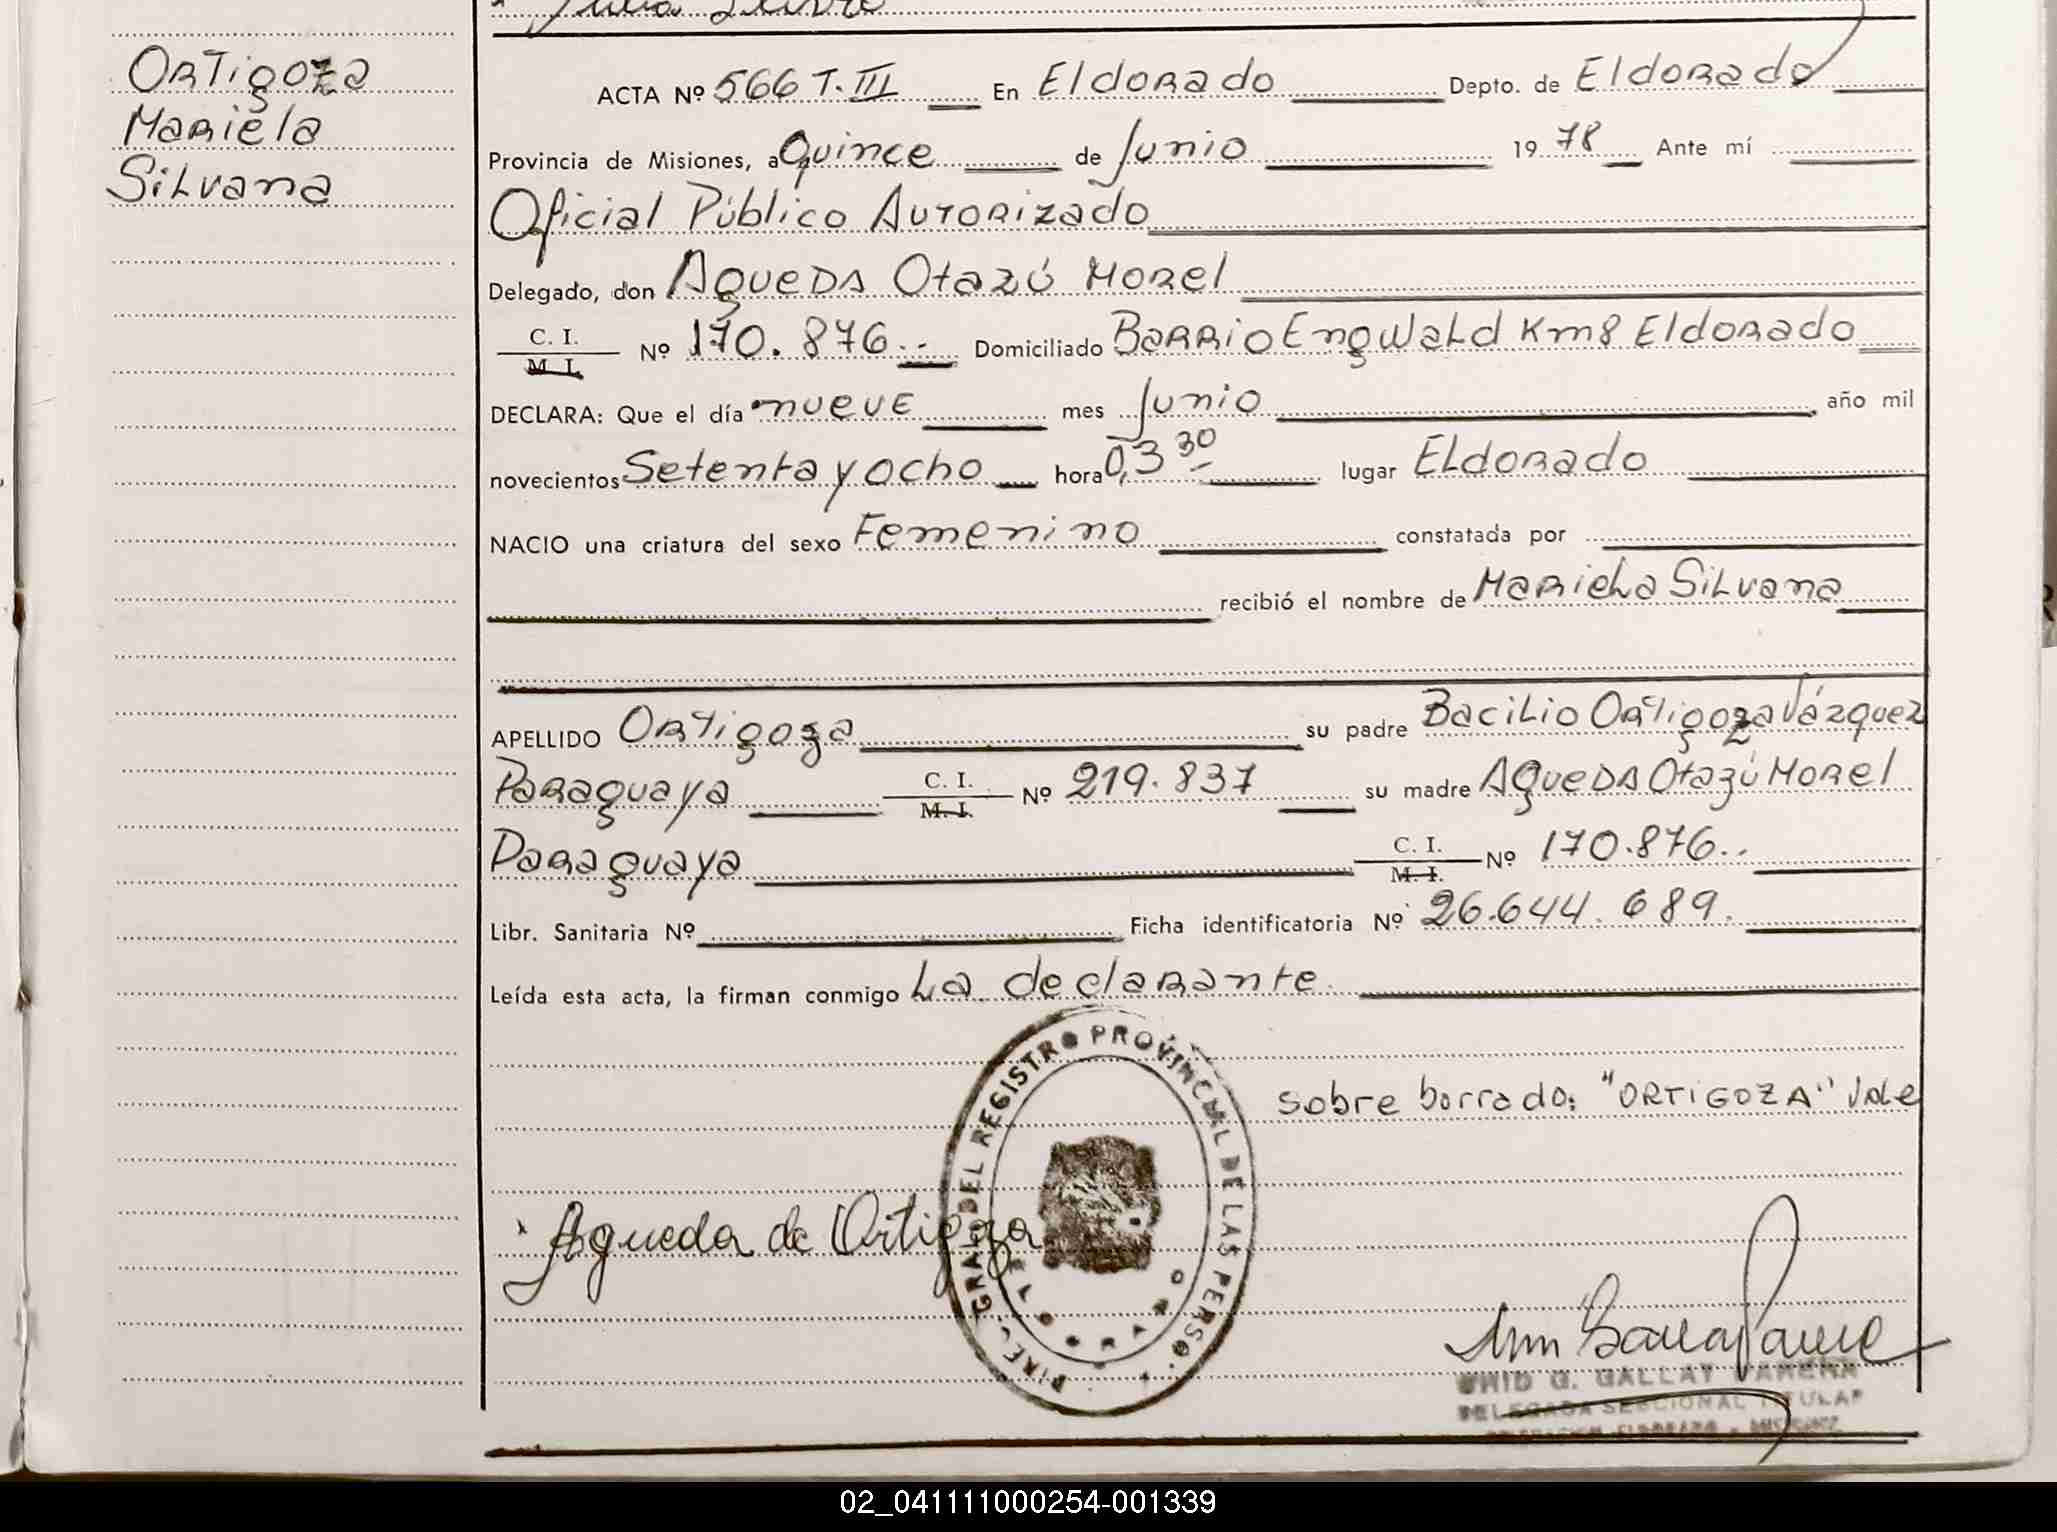 Ortigoza
Mariela
Silvana
ACTA Nº 566 T. III En Eldorado Depto. de Eldorado
Provincia de Misiones, a Quince de Junio 19 78 Ante mí
Oficial Público Autorizado
Delegado, don Agueda Otazú Morel
C. I.
M. I.
Nº 170.876.. Domiciliado Barrio Engwald Km 8 Eldorado
DECLARA: Que el día nueve mes Junio año mil
novecientos Setenta y ocho hora 0,3 30 lugar Eldorado
NACIO una criatura del sexo Femenino constatada por
recibió el nombre de Mariela Silvana
APELLIDO Ortigoza su padre Bacilio Ortigoza Vázquez
Paraguaya C. I. M. I. Nº 219.837 su madre Agueda Otazú Morel
Paraguaya C. I. M. I. Nº 170.876..
Libr. Sanitaria Nº Ficha identificatoria Nº 26.644.689.
Leída esta acta, la firman conmigo La declarante.
DIREC. GRAL. DEL REGISTRO PROVINCIAL DE LAS PERSO
sobre borrado: "ORTIGOZA" Vale
Agueda de Ortigoza
G. GALLAY
DELEGADA SECCIONAL TITULAR
02_041111000254-001339